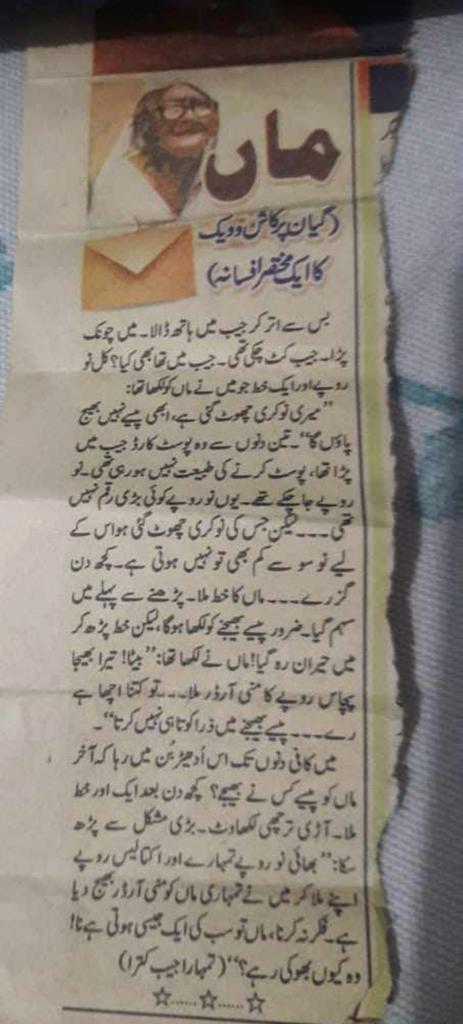 ماں
(گیان پرکاش وویک
کا ایک مختصر افسانہ)
بس سے اتر کر جیب میں ہاتھ ڈالا۔ میں چونک
پڑا۔ جیب کٹ چکی تھی۔ جیب میں تھا بھی کیا؟ کل نو
روپے اور ایک خط جو میں نے ماں کو لکھا تھا:
”میری نوکری چھوٹ گئی ہے، ابھی پیسے نہیں بھیج
پاؤں گا“۔ تین دنوں سے وہ پوسٹ کارڈ جیب میں
پڑا تھا، پوسٹ کرنے کی طبیعت نہیں ہو رہی تھی۔ نو
روپے جا چکے تھے۔ یوں نو روپے کوئی بڑی رقم نہیں
تھی۔۔۔۔ لیکن جس کی نوکری چھوٹ گئی ہو اس کے
لیے نو سو سے کم بھی تو نہیں ہوتی ہے۔ کچھ دن
گزرے۔۔۔۔ ماں کا خط ملا۔ پڑھنے سے پہلے میں
سہم گیا۔ ضرور پیسے بھیجنے کو لکھا ہوگا، لیکن خط پڑھ کر
میں حیران رہ گیا! ماں نے لکھا تھا: ”بیٹا! تیرا بھیجا
پچاس روپے کا منی آرڈر ملا۔۔۔۔ تو کتنا اچھا ہے
رے۔۔۔۔ پیسے بھیجنے میں ذرا کوتاہی نہیں کرتا“۔
میں کافی دنوں تک اس اُدھیڑ بُن میں رہا کہ آخر
ماں کو پیسے کس نے بھیجے؟ کچھ دن بعد ایک اور خط
ملا۔ آڑی ترچھی لکھاوٹ۔ بڑی مشکل سے پڑھ
سکا: ”بھائی نو روپے تمہارے اور اکتالیس روپے
اپنے ملا کر میں نے تمہاری ماں کو منی آرڈر بھیج دیا
ہے۔ فکر نہ کرنا، ماں تو سب کی ایک جیسی ہوتی ہے نا!
وہ کیوں بھوکی رہے؟“ (تمہارا جیب کترا)
☆......☆......☆